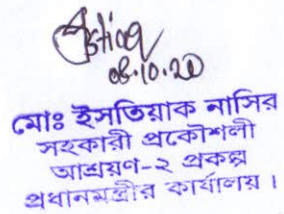 08.10.20
মোঃ ইসতিয়াক নাসির
সহকারী প্রকৌশলী
আশ্রয়ণ-২ প্রকল্প
প্রধানমন্ত্রীর কার্যালয় ।